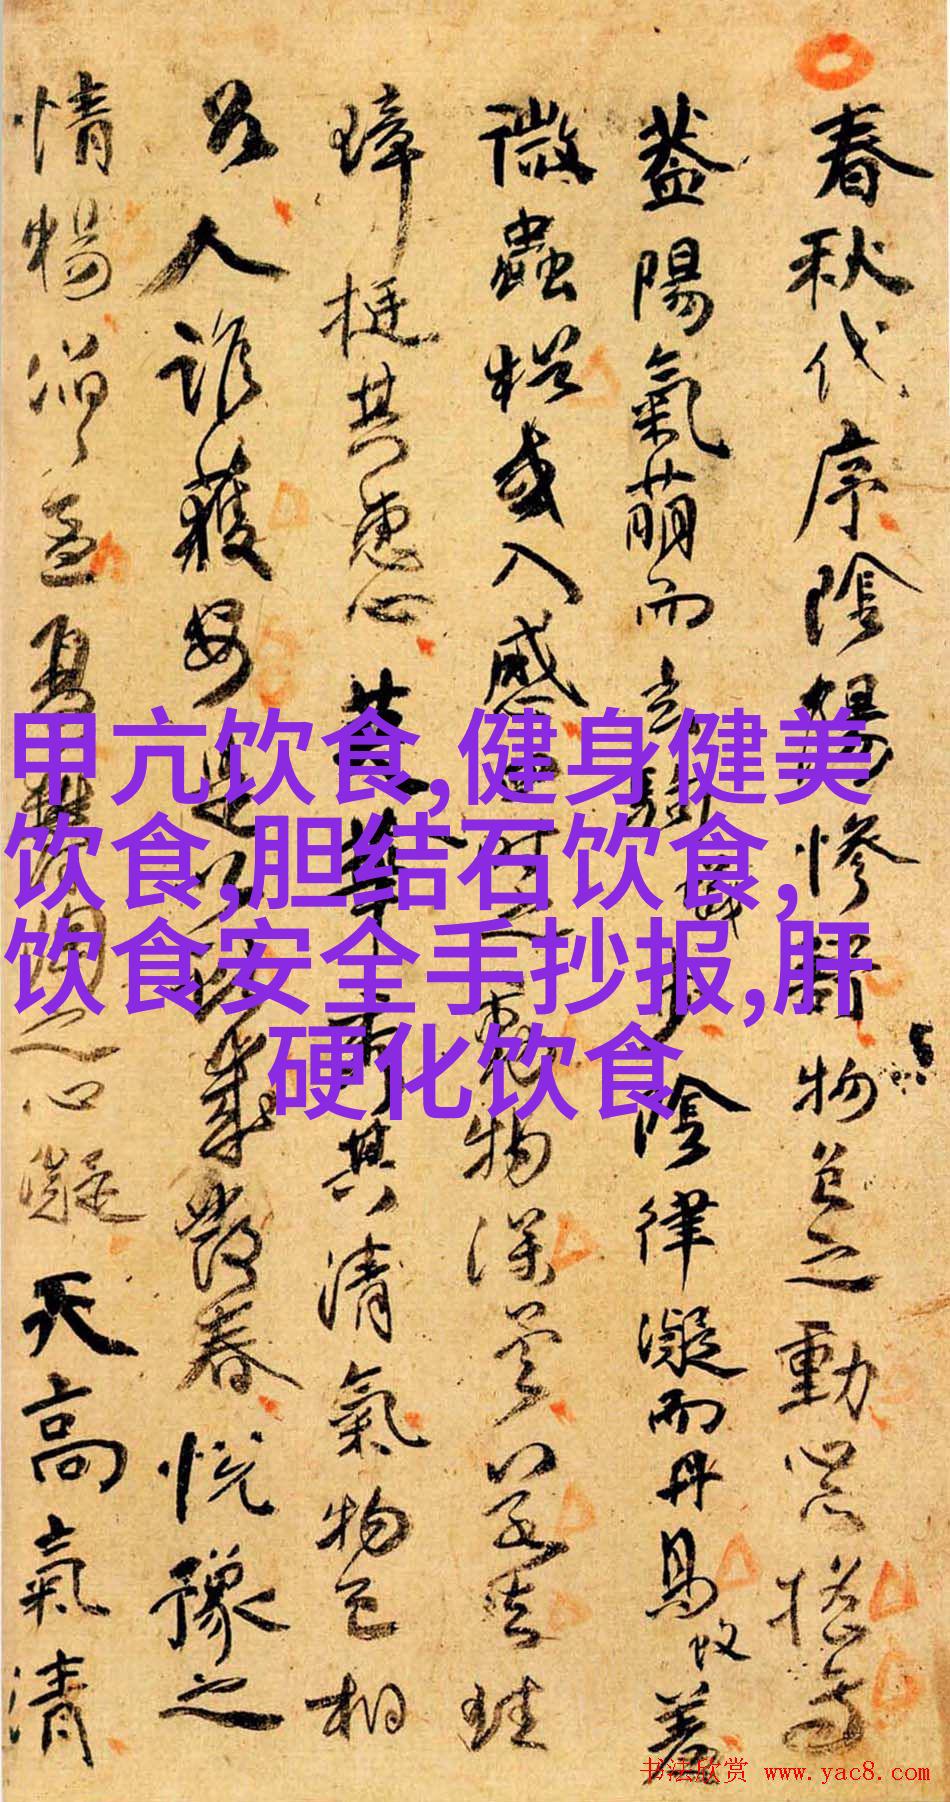 春秋代序陰陽慘舒物色之動心亦搖焉
蓋陽氣萌而玄駒蟻步陰律凝而丹鳥蚊羞
微蟲猶或入感四時之動物深矣若夫珪
璋挺其惠心英華秀其清氣物色相
召人誰獲安是以獻歲發春悅豫之
情暢滔滔孟夏鬱陶之心凝天高氣清
甲亢饮食,健身健美
饮食,胆结石饮食,
饮食安全手抄报,肝
硬化饮食
书法欣赏 www.yac8.com